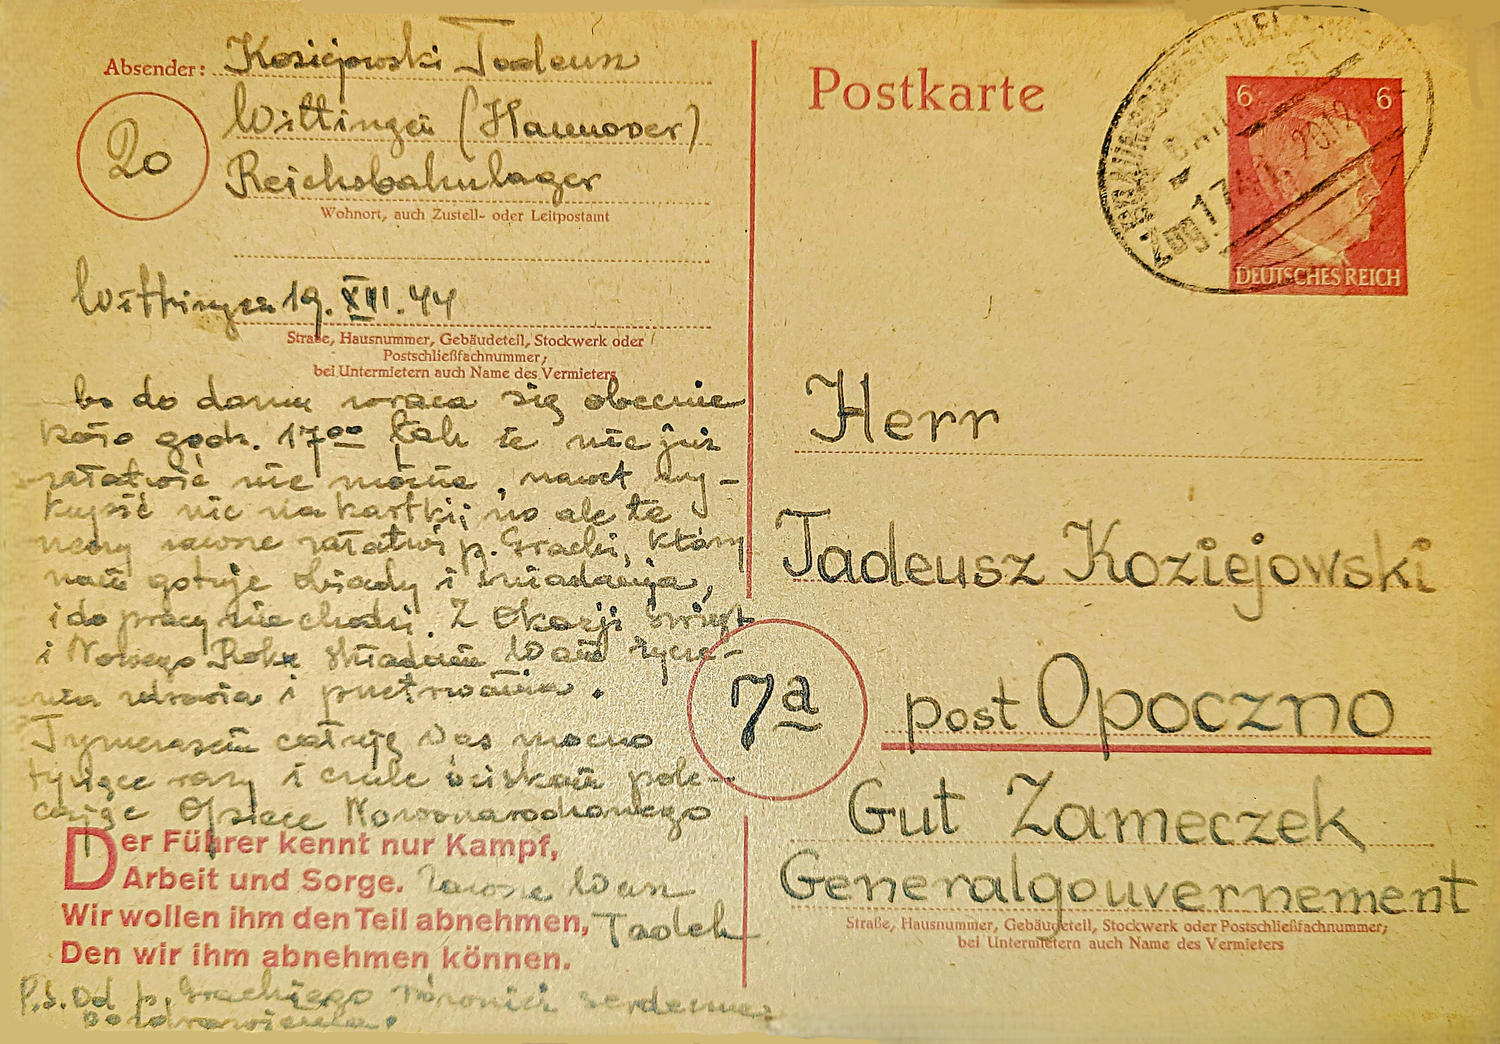 Absender: Koziejowski Tadeusz
Wittingen (Hannover)
20
Reichsbahnlager
Wohnort, auch Zustell- oder Leitpostamt
Wittingen 19. XII. 44
Straße, Hausnummer, Gebäudeteil, Stockwerk oder
Postschließfachnummer;
bei Untermietern auch Name des Vermieters
bo do domu wraca się obecnie
koło godz. 17⁰⁰ tak że nic już
załatwić nie można, nawet wy-
kupić nic na kartki; no ale te
rzeczy zawsze załatwi p. Gracki, który
nam gotuje obiady i śniadania,
i do pracy nie chodzi. Z Okazji świąt
i Nowego Roku składam Wam życze-
nia zdrowia i przetrwania.
Tymczasem całuję Was mocno
tysiące razy i czule ściskam pole-
cając Opiece Nowonarodzonego
Der Führer kennt nur Kampf,
Arbeit und Sorge. Zawsze Wasz
Wir wollen ihm den Teil abnehmen, Tadek
Den wir ihm abnehmen können.
P.S. Od p. Grackiego również serdeczne
Pozdrowienia.
Postkarte
6 6
Zug 17
DEUTSCHES REICH
Herr
Tadeusz Koziejowski
7a post Opoczno
Gut Zameczek
Generalgouvernement
Straße, Hausnummer, Gebäudeteil, Stockwerk oder Postschließfachnummer;
bei Untermietern auch Name des Vermieters